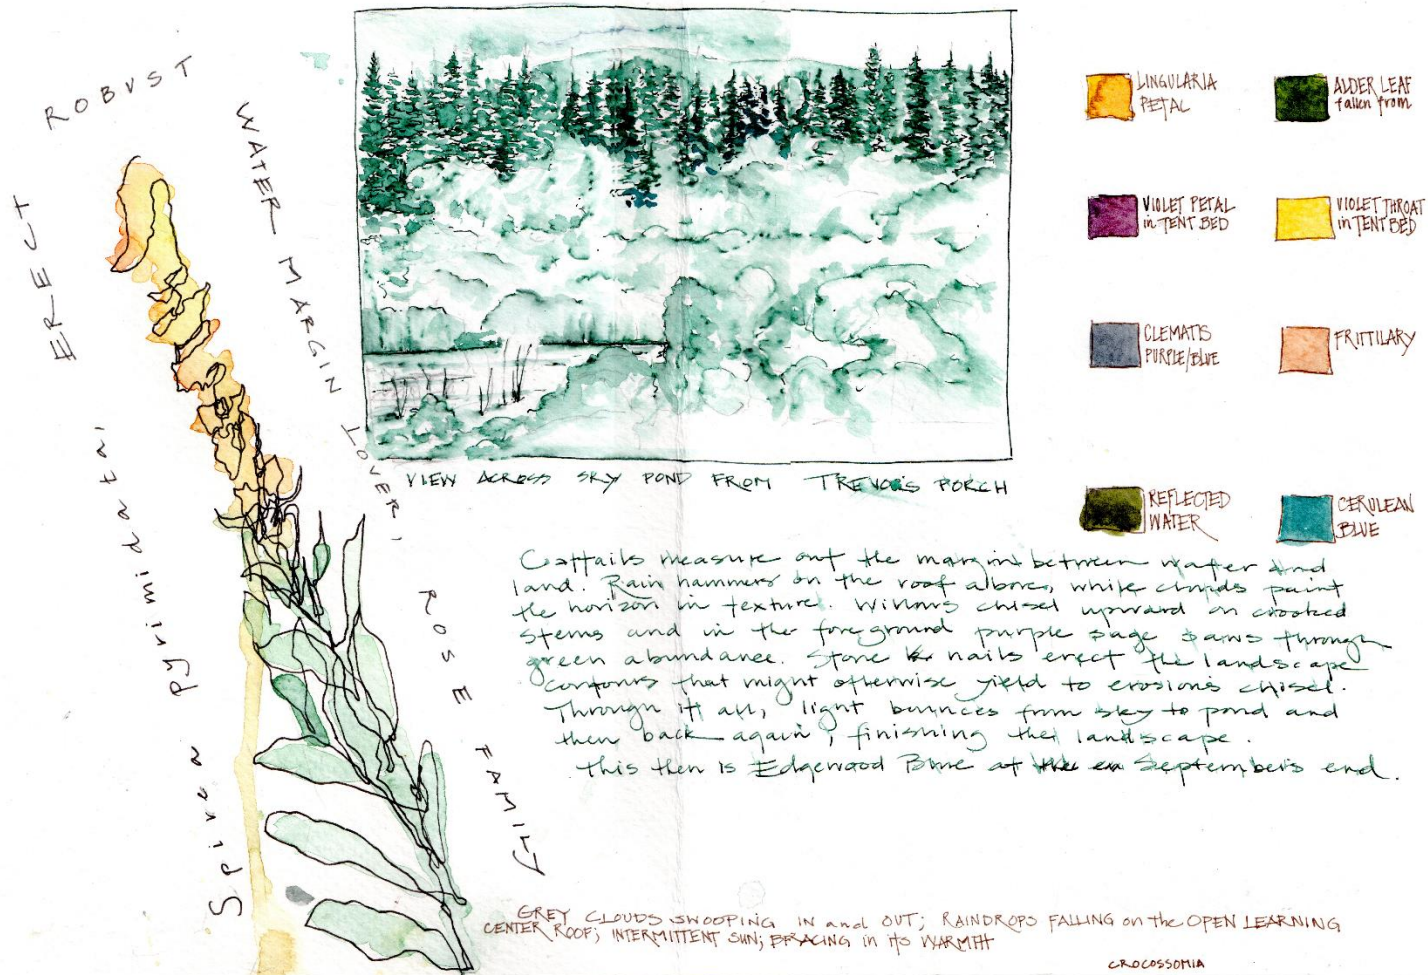 ERECT ROBUST
WATER MARGIN LOVER, ROSE FAMILY
Spirea pyrimidatai
VIEW ACROSS SKY POND FROM TREVOR'S PORCH
LINGULARIA
PETAL
ALDER LEAF
fallen from
VIOLET PETAL
in TENT BED
VIOLET THROAT
in TENT BED
CLEMATIS
PURPLE/BLUE
FRITILARY
REFLECTED
WATER
CERULEAN
BLUE
Cattails measure out the margin between water and
land. Rain hammers on the roof above, while clouds paint
the horizon in texture. Willows chisel upward on crooked
stems and in the foreground purple sage saws through
green abundance. Stone nails erect the landscape
contours that might otherwise yield to erosion's chisel.
Through it all, light bounces from sky to pond and
then back again, finishing the landscape.
This then is Edgewood Blue at September's end.
GREY CLOUDS SWOOPING IN and OUT; RAINDROPS FALLING on the OPEN LEARNING
CENTER ROOF; INTERMITTENT SUN; BRACING in its WARMTH
CROCOSSOMIA